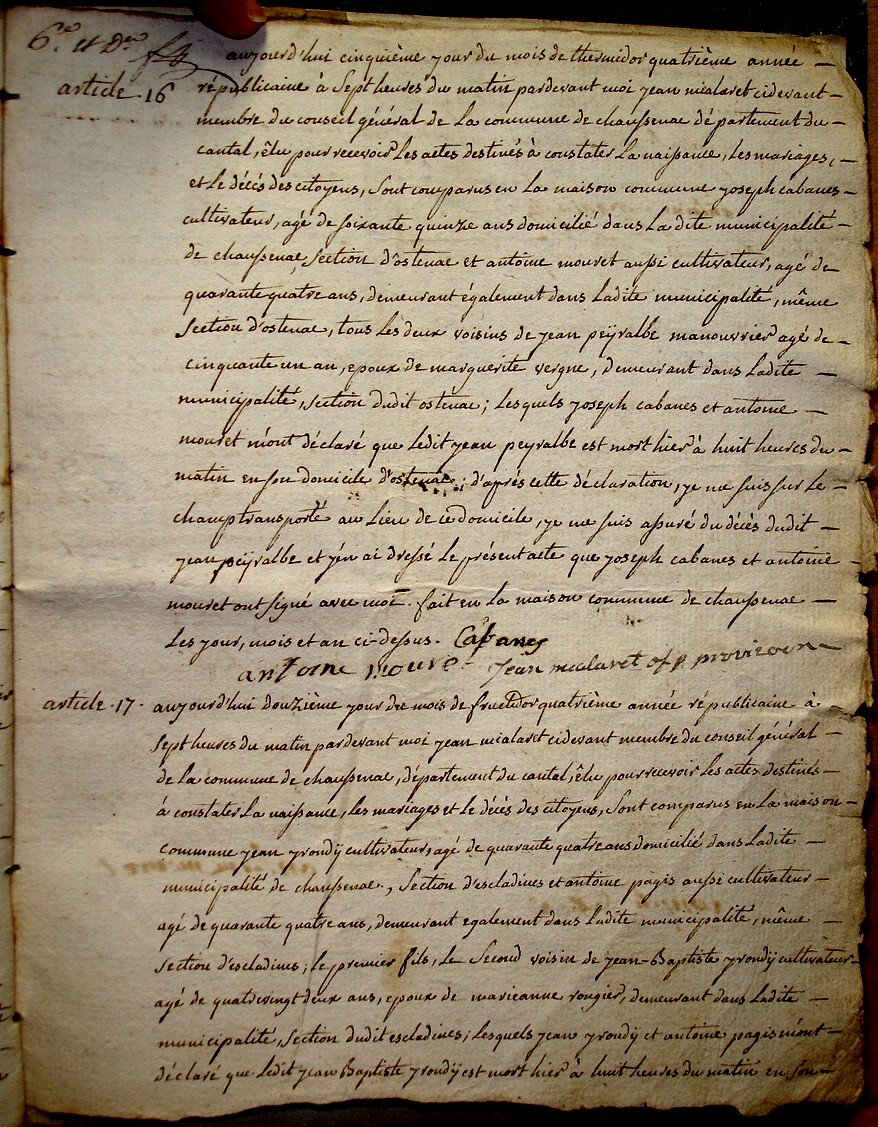 6e et Der
article 16
aujourd'hui cinquième jour du mois de thermidor quatrième année —
républicaine à Sept heures du matin pardevant moi jean mialaret cidevant —
membre du conseil général de La commune de chaussenac département du —
cantal, élu pour recevoir Les actes destinés à constater La naissance, Les mariages, —
et Le décès des citoyens, Sont comparus en La maison commune joseph cabanes —
cultivateur, agé de soixante quinze ans domicilié dans La dite municipalité —
de chaussenac, Section d'ostenac et antoine mouret aussi cultivateur, agé de
quarante quatre ans, demeurant également dans Ladite municipalité, même
Section d'ostenac, tous Les deux voisins de jean peyralbe manouvrier agé de —
cinquante un an, epoux de marguerite vergne, demeurant dans Ladite —
municipalité, Section dudit ostenac; Lesquels joseph cabanes et antoine —
mouret m'ont déclaré que Ledit jean peyralbe est mort hier à huit heures du —
matin en son domicile d'ostenac; d'après cette déclaration, je me suis sur Le —
champ transporté au Lieu de ce domicile, je me suis assuré du décès dudit —
jean peyralbe et j'en ai dressé Le présent acte que joseph cabanes et antoine —
mouret ont signé avec moi. fait en La maison commune de chaussenac —
Les jour, mois et an ci-dessus. Cabanes
antoine mouret jean mialaret of p provizoir
article 17. aujourd'hui douzième jour du mois de fructidor quatrième année républicaine à —
Sept heures du matin pardevant moi jean mialaret cidevant membre du conseil général —
de La commune de chaussenac, département du cantal, élu pour recevoir Les actes destinés —
à constater La naissance, Les mariages et Le décès des citoyens, Sont comparus en La maison —
commune jean yrondij cultivateur, agé de quarante quatre ans domicilié dans Ladite —
municipalité de chaussenac, Section d'escladines et antoine pagis aussi cultivateur —
agé de quarante quatre ans, demeurant egalement dans Ladite municipalité, même —
Section d'escladines; Le premier fils, Le Second voisin de jean-Baptiste yrondij cultivateur —
agé de quatrevingt deux ans, epoux de marieanne rongier, demeurant dans Ladite —
municipalité, Section dudit escladines; Lesquels jean yrondij et antoine pagis m'ont —
déclaré que Ledit jean Baptiste yrondij est mort hier à huit heures du matin en Son —